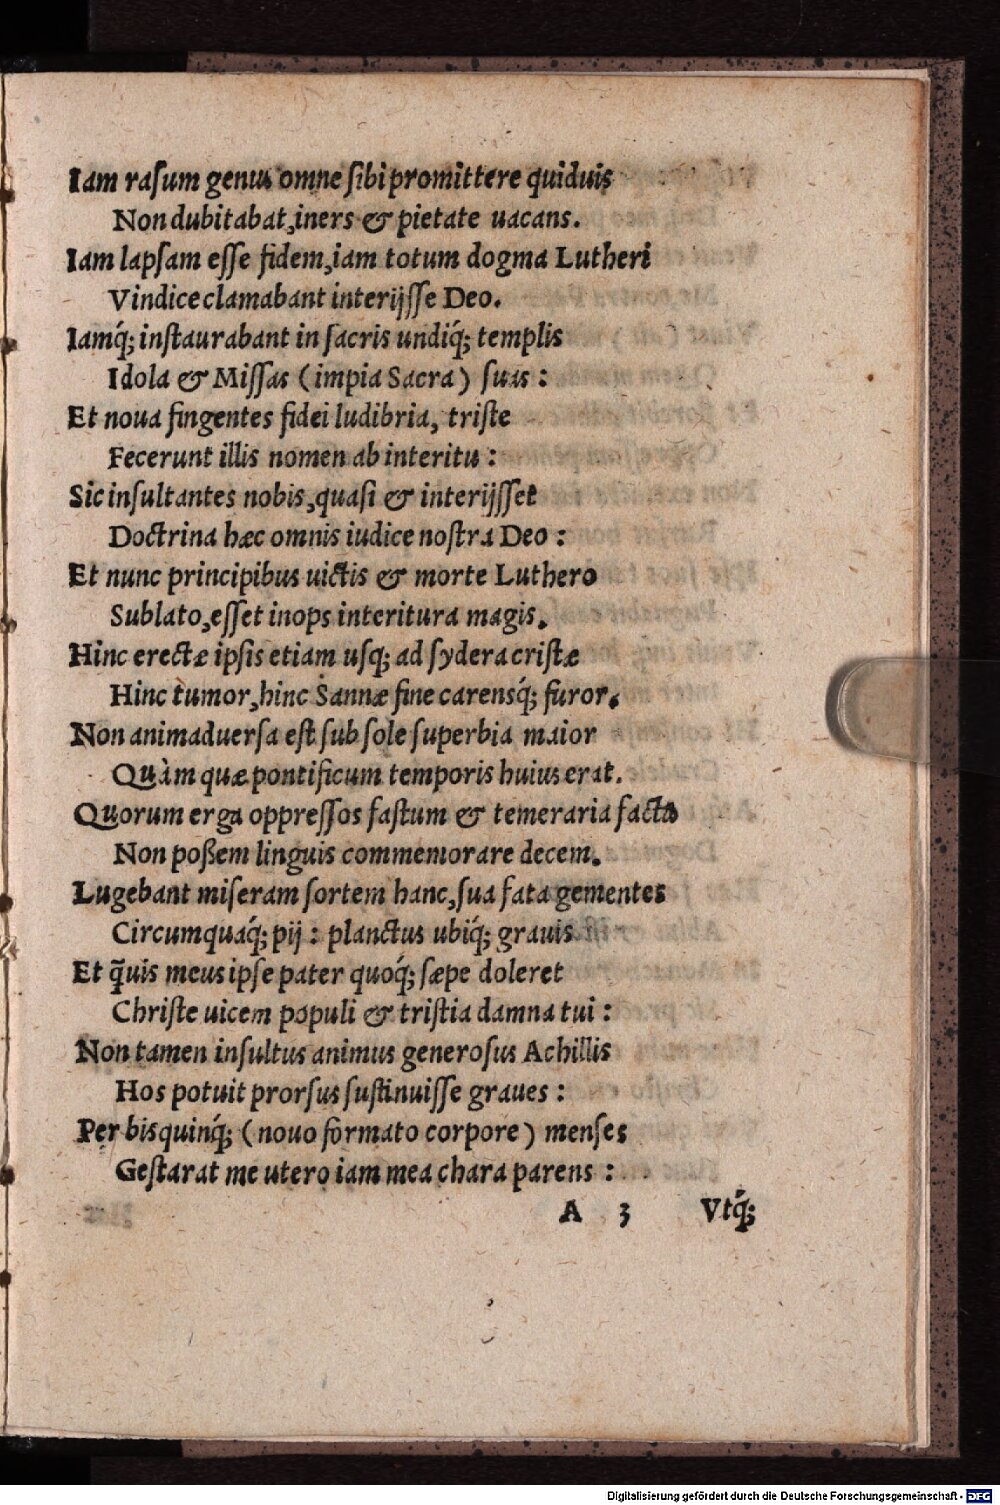 Iam raſum genus omne ſibi promittere quiduis
Non dubitabat, iners & pietate uacans.
Iam lapſam eſſe fidem, iam totum dogma Lutheri
Vindice clamabant interijſſe Deo.
Iamq́; inſtaurabant in ſacris undiq́; templis
Idola & Miſſas (impia Sacra) ſuas:
Et noua fingentes fidei ludibria, triſte
Fecerunt illis nomen ab interitu:
Sic inſultantes nobis, quaſi & interijſſet
Doctrina hæc omnis iudice noſtra Deo:
Et nunc principibus uictis & morte Luthero
Sublato, eſſet inops interitura magis.
Hinc erectæ ipſis etiam uſq; ad ſydera criſtæ
Hinc tumor, hinc Sannæ fine carensq́; furor.
Non animaduerſa eſt ſub ſole ſuperbia maior
Quàm quæ pontificum temporis huius erat.
Quorum erga oppreſſos faſtum & temeraria facta
Non poßem linguis commemorare decem.
Lugebant miſeram ſortem hanc, ſua fata gementes
Circumquaq́; pij: planctus ubiq́; grauis.
Et q̃uis meus ipſe pater quoq́; ſæpe doleret
Chriſte uicem populi & triſtia damna tui:
Non tamen inſultus animus generoſus Achillis
Hos potuit prorſus ſuſtinuiſſe graues:
Per bis quinq́; (nouo formato corpore) menſes
Geſtarat me utero iam mea chara parens:
A 3 Vtq́;
Digitalisierung gefördert durch die Deutsche Forschungsgemeinschaft - DFG